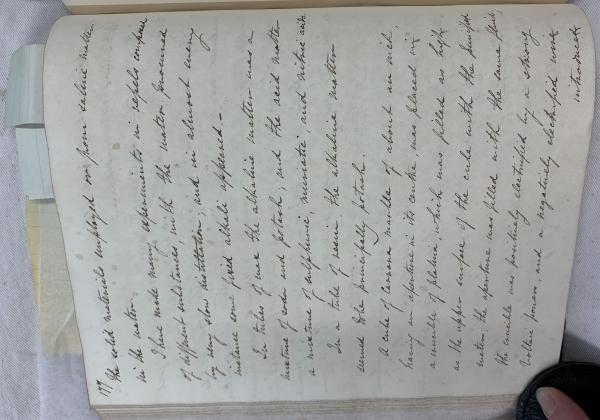 177
the solid materials employed or from saline matter
in the water.
I have made many experiments in vessels composed
of different substances with the water procured
by very slow distillation; and in almost every
instance some fixed alkali appeared –
In tubes of wax the alkaline matter was a
mixture of soda and potash; and the acid matter
a mixture of sulphuric, muriatic, and nitric acid
In a tube of resin the alkaline matter
seemed to be principally potash.
A cube of Carrara marble of about an inch,
having an aperture in its centre was placed in
a crucible of platina, which was filled as high
as the upper surface of the cube with the purified
water; the aperture was filled with the same fluid,
the crucible was positively electrified by a strong
Voltaic power, and a negatively electrified wire
introduced